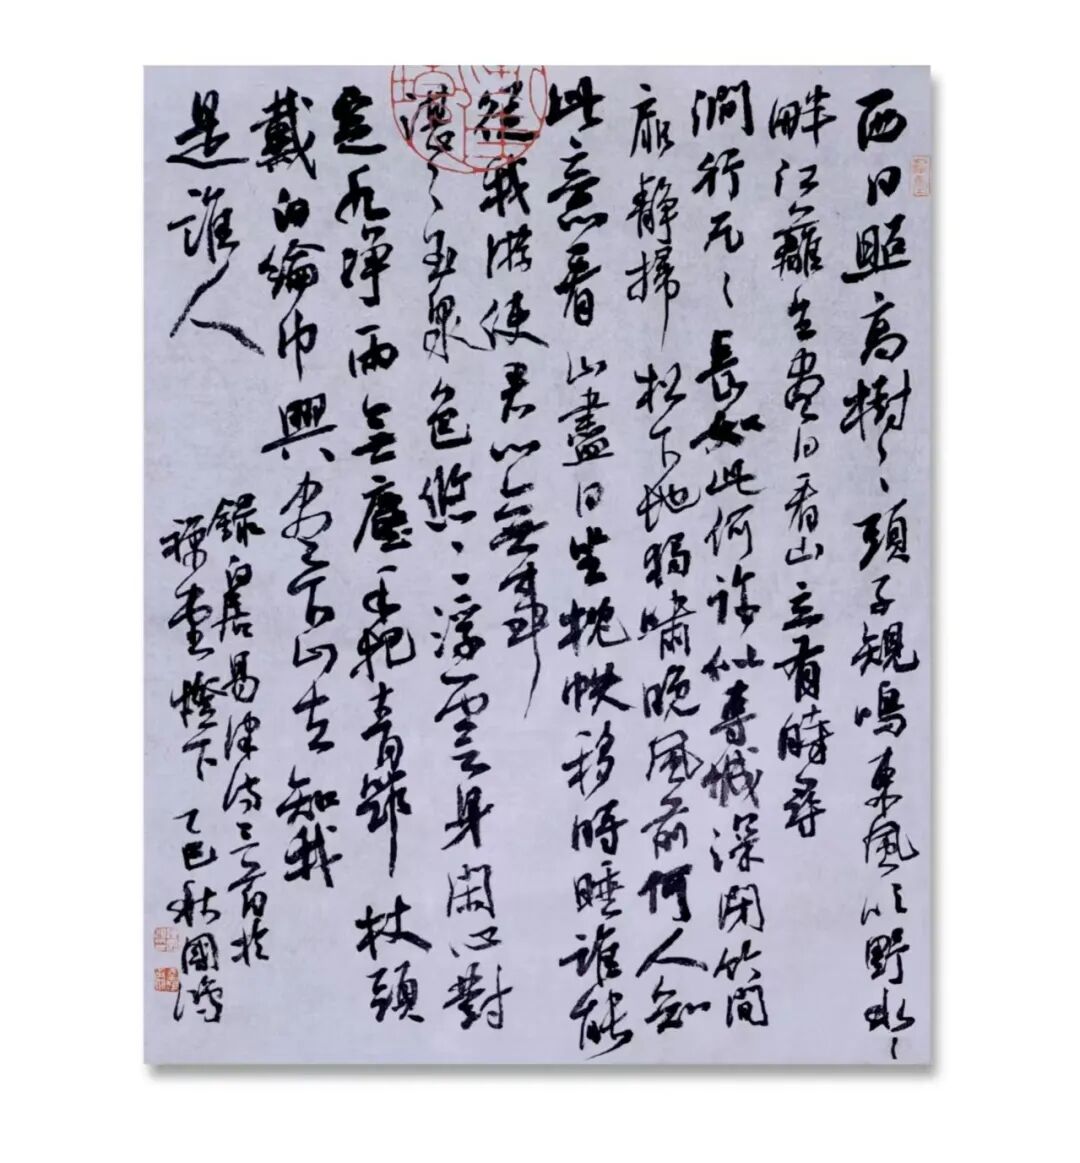 西日照高樹〻頭子規鳴東風吹野水〻
畔江蘺生盡日看山立有時尋
澗行兀〻長如此何許似專城深閉竹間
扉靜掃松下地獨嘯晚風前何人知
此意看山盡日坐枕帙移時睡誰能
從我游使君心無事
湛〻玉泉色悠〻浮雲身閑心對
定水淨兩無塵手把青筇杖頭
戴白綸巾興盡下山去知我
是誰人
錄白居易律詩三首於
禪燈下乙巳秋國鴻